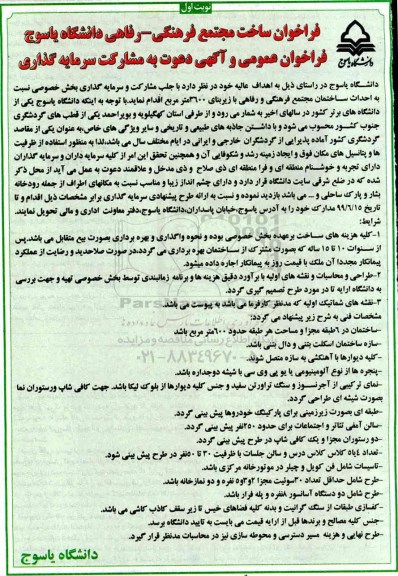 نوبت اول
فراخوان ساخت مجتمع فرهنگی-رفاهی دانشگاه یاسوج
فراخوان عمومی و آگهی دعوت به مشارکت سرمایه گذاری
دانشگاه یاسوج
دانشگاه یاسوج در راستای ذیل به اهداف عالیه خود در نظر دارد با جلب مشارکت و سرمایه گذاری بخش خصوصی نسبت
به احداث ساختمان مجتمع فرهنگی و رفاهی با زیربنای ۳۶۰۰متر مربع اقدام نماید.با توجه به اینکه دانشگاه یاسوج یکی از
دانشگاه های برتر کشور در سالهای اخیر به شمار می رود و از طرفی استان کهگیلویه و بویراحمد یکی از قطب های گردشگری
جنوب کشور محسوب می شود و با داشتن جاذبه های طبیعی و تاریخی و سایر ویژگی های خاص،به عنوان یکی از مقاصد
گردشگری کشور آماده پذیرایی از گردشگران خارجی و ایرانی در ایام مختلف سال می باشد،لذا به منظور استفاده از ظرفیت
ها و پتانسیل های مکان فوق و ایجاد زمینه رشد و شکوفایی آن و همچنین تحقق این امر از کلیه سرمایه داران و سرمایه گذاران
دارای تجربه و خوشنام منطقه ای و فرا منطقه ای ذی صلاح و ذی مدخل و علاقمند دعوت به عمل می آید از محل ذکر
شده که در ضلع شرقی سایت دانشگاه قرار دارد و دارای چشم انداز زیبا و مناسب نسبت به مکانهای اطراف از جمله رودخانه
بشار و پارک ساحلی و ... می باشد بازدید نموده و نسبت به ارائه طرح پیشنهادی سرمایه گذاری برابر مشخصات ذیل اقدام و تا
تاریخ ۹۹/۶/۱۵ مدارک خود را به آدرس یاسوج،خیابان پاسداران،دانشگاه یاسوج،دفتر معاونت اداری و مالی تحویل نمایند.
شرایط:
۱-کلیه هزینه های ساخت برعهده بخش خصوصی بوده و نحوه واگذاری و بهره برداری بصورت بیع متقابل می باشد.پس
از سنوات ۱۰ تا ۱۵ ساله که بصورت مشترک از ساختمان بهره برداری می گردد،در صورت صلاحدید و رضایت از عملکرد
پیمانکار مجددا آن ملک با قیمت روز به پیمانکار اجاره داده میشود.
۲-طراحی و محاسبات و نقشه های اولیه با برآورد دقیق هزینه ها و برنامه زمانبندی توسط بخش خصوصی تهیه و جهت بررسی
به دانشگاه ارایه تا در مورد طرح تصمیم گیری گردد.
۳-نقشه های شماتیک اولیه که مدنظر کارفرما می باشد به پیوست می باشد.
مشخصات فنی به شرح زیر پیشنهاد می گردد:
-ساختمان در ۶طبقه مجزا و مساحت هر طبقه حدود ۶۰۰متر مربع باشد
-سازه ساختمان اسکلت بتنی و دال بتنی باشد.
-کلیه دیوارها با آهنکشی به سازه متصل شوند.
-پنجره ها از نوع آلومینیومی یا یو پی وی سی با شیشه دوجداره باشد.
-نمای ترکیبی از آجرنسوز و سنگ تراورتن سفید و جنس کلیه دیوارها از بلوک لیکا باشد. جهت کافی شاپ ورستوران نما
بصورت شیشه ای طراحی گردد.
-طبقه ای بصورت زیرزمینی برای پارکینگ خودروها پیش بینی گردد.
-سالن آمفی تئاتر و اجتماعات برای حدود ۲۵۰نفر پیش بینی گردد.
-دو رستوران مجزا و یک کافی شاپ در طرح پیش بینی گردد.
-تعداد ۴یا۵ کلاس کلاس درس و سالن جلسات با ظرفیت ۳۰ تا ۵۰نفر در طرح پیش بینی شود.
-تاسیسات شامل فن کویل و چیلر در موتورخانه مرکزی باشد.
-طرح شامل حداقل تعداد ۳۰سوئیت مجزا ۲و۳و۵ نفره و دو نمازخانه باشد.
-طرح شامل دو دستگاه آسانسور ۸نفره و پله فرار باشد.
-کفسازی طبقات از سنگ گرانیت و بدنه کلیه فضاهای خیس تا زیر سقف کاذب کاشی می باشد.
-جنس کلیه مصالح و برندها قبل از ارایه قیمت می بایست به تایید دانشگاه برسد.
-طرح نهایی و هزینه مسیر دسترسی و محوطه سازی نیز در محاسبات مدنظر قرار گیرد.
دانشگاه یاسوج